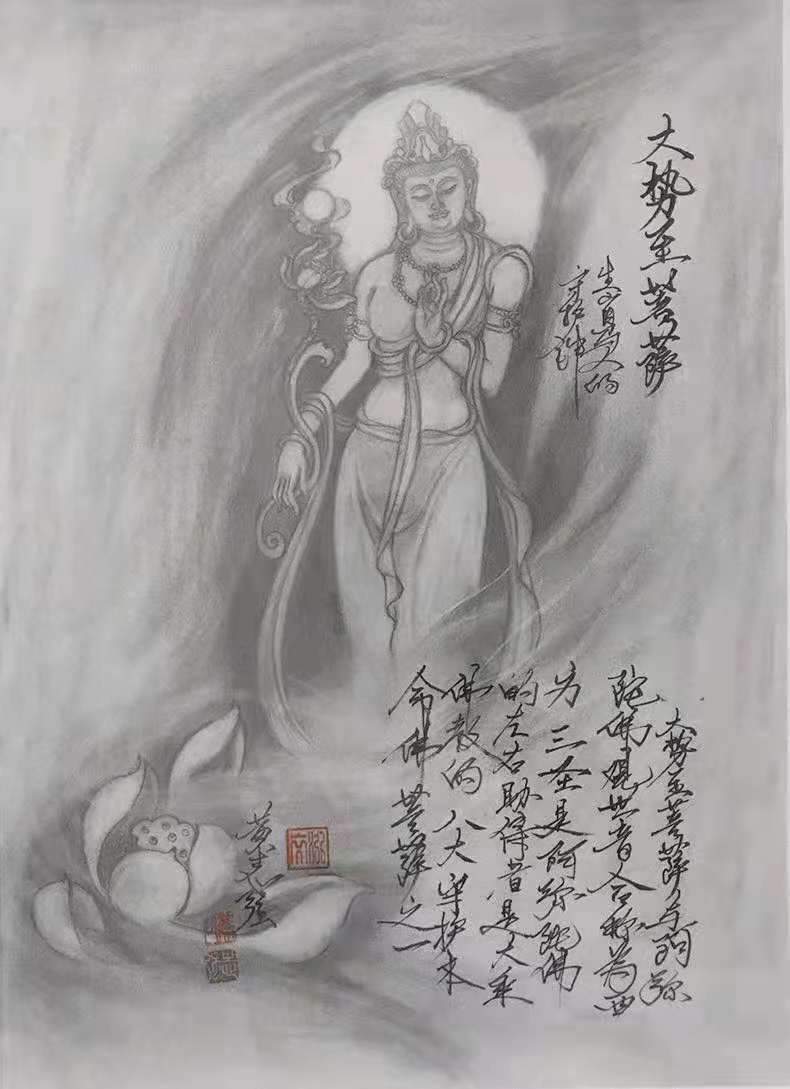 大势至菩萨
生肖马人的
守护神
大势至菩萨与阿弥
陀佛观世音合称为西
方三圣是阿弥陀佛
的左右胁侍者是大乘
佛教的八大守护本
命佛菩萨之一